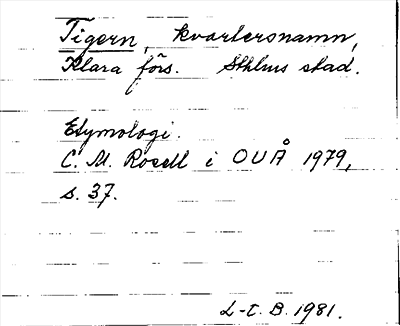 Tigern, kvartersnamn,
Klara förs. Sthlms stad.
Etymologi.
C. M. Rosell i OUÅ 1979,
s. 37.
L-t. B. 1981.